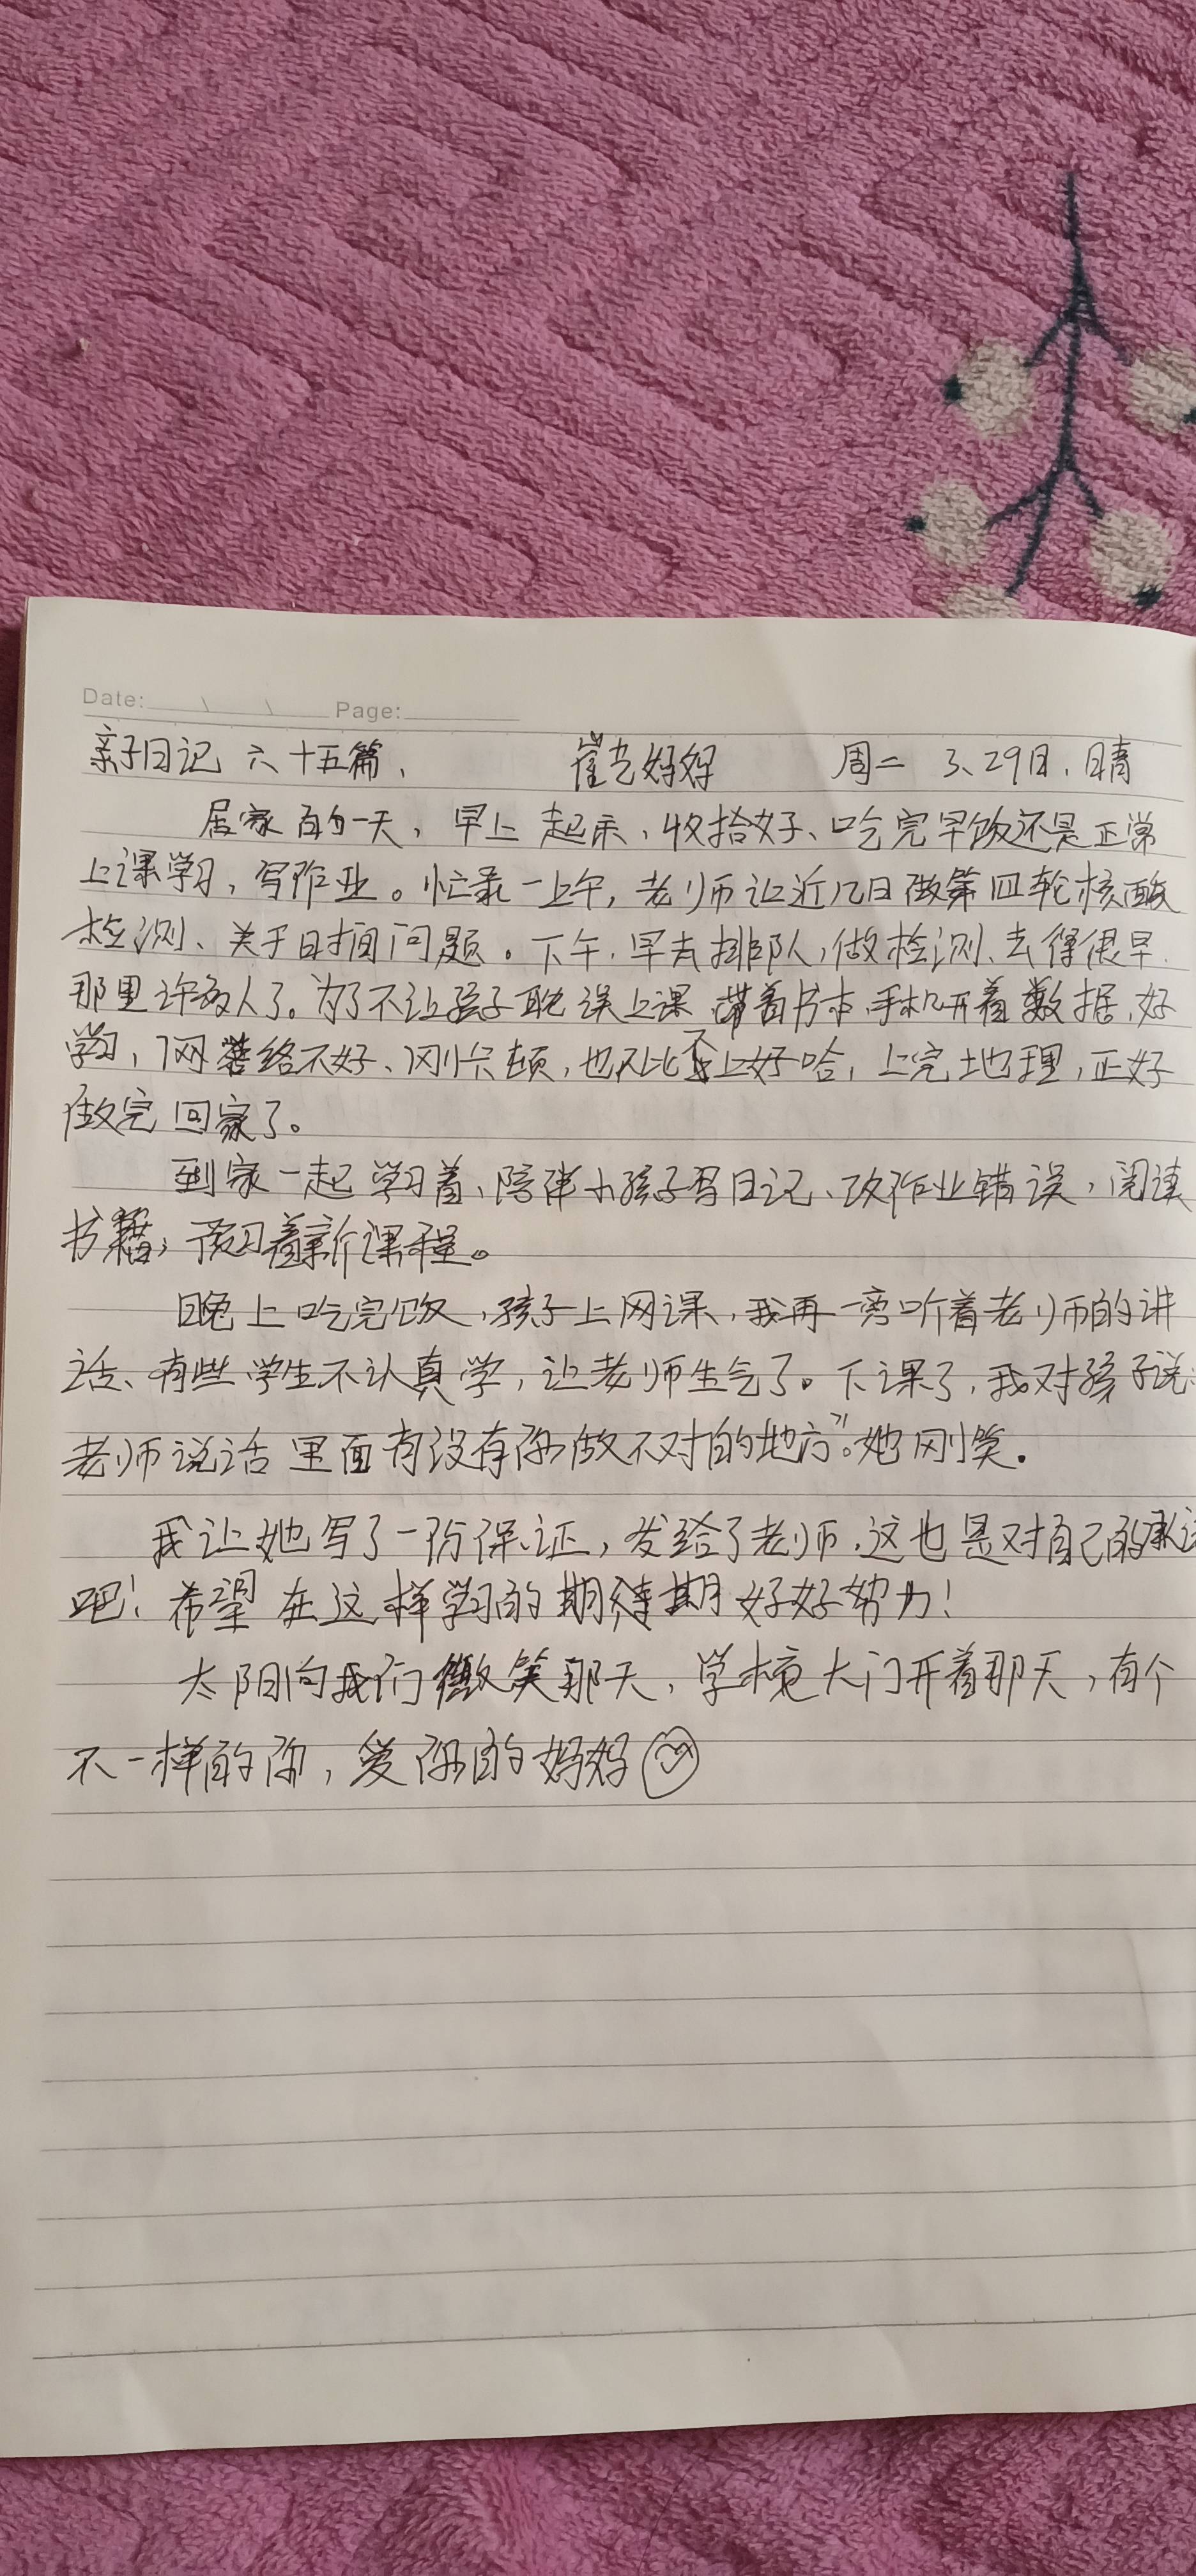 Date: \ \ Page:
亲子日记 六十五篇、 崔艺妈妈 周二 3、29日、晴
居家的一天，早上起床、收拾好、吃完早饭还是正常
上课学习，写作业。忙录一上午，老师让近几日做第四轮核酸
检测、关于时间问题。下午，早去排队，做检测、去得很早
那里许多人了。为了不让孩子耽误上课 带着书本、手机开着数据、好
学习，网络不好、刚卡顿，也不比不上好哈，上完地理，正好
做完回家了。
到家一起学习着、陪伴小孩子写日记、改作业错误，阅读
书籍，预习着新课程。
晚上吃完饭，孩子上网课，我再一旁听着老师的讲
话、有些学生不认真学，让老师生气了。下课了，我对孩子说：
老师说话里面有没有你做不对的地方”。她刚笑.
我让她写了一份保证，发给了老师，这也是对自己的承诺
吧！希望在这样学习的期待期好好努力！
太阳向我们微笑那天，学校大门开着那天，有个
不一样的你，爱你的妈妈